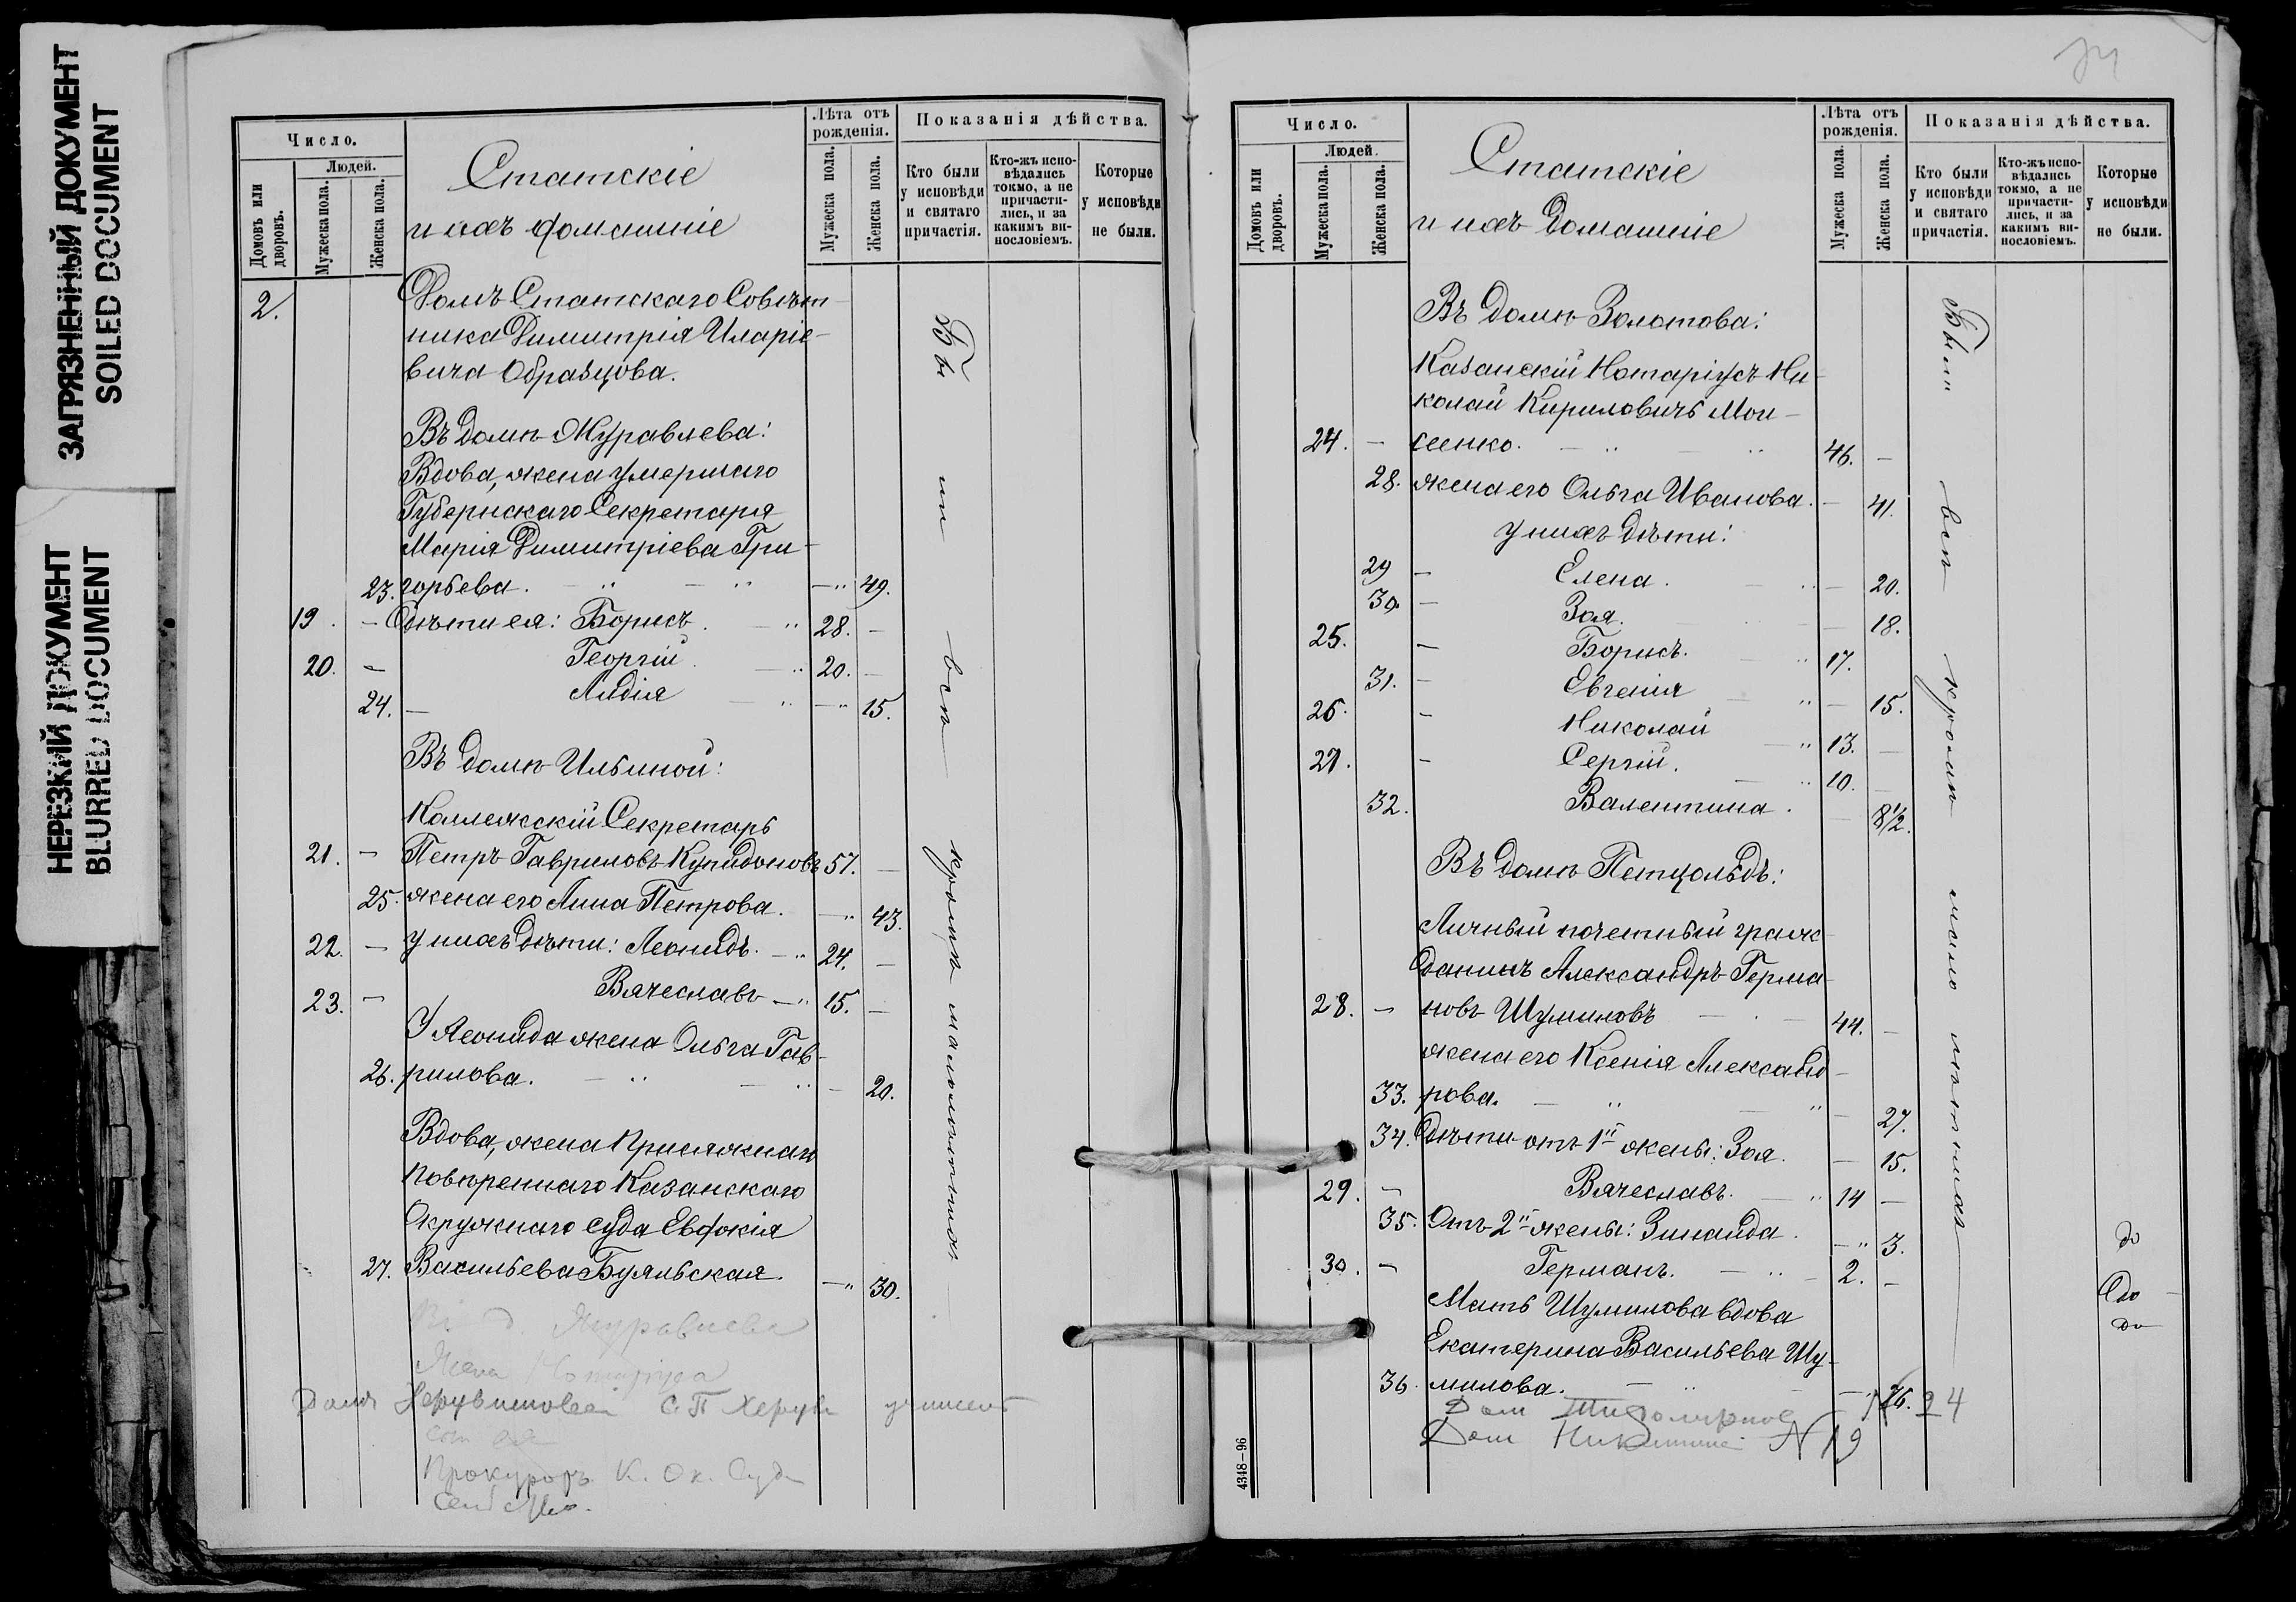 ЗАГРЯЗНЕННЫЙ ДОКУМЕНТ
SOILED DOCUMENT
НЕРЕЗКИЙ ДОКУМЕНТ
BLURRED DOCUMENT
Число.
Людей.
Домовъ или дворовъ.
Мужеска пола.
Женска пола.
Статскіе
и ихъ домашніе
Лѣта отъ рожденія.
Мужеска пола.
Женска пола.
Показанія дѣйства.
Кто были у исповѣди и святаго причастія.
Кто-жъ исповѣдались токмо, а не причастились, и за какимъ винословіемъ.
Которые у исповѣди не были.
2. Домъ Статскаго Совѣт-
ника Димитрія Иларіе-
вича Образцова.
Въ домѣ Журавлева:
Вдова, жена умершаго
Губернскаго Секретаря
Марія Димитріева Гри-
23. горьева. 49.
19. Дѣти ея: Борисъ. 28.
20. Георгій. 20.
24. Лидія 15.
Въ домѣ Ильиной:
Коллежскій Секретарь
21. Петръ Гавриловъ Купидоновъ 57.
25. жена его Анна Петрова. 43.
22. у нихъ дѣти: Леонидъ. 24.
23. Вячеславъ 15.
У Леонида жена Ольга Гав-
26. рилова. 20.
Вдова, жена Присяжнаго
Повѣреннаго Казанскаго
Окружнаго Суда Евдокія
27. Васильева Буяльская. 30.
Были всѣ кромѣ малолѣтнихъ
Журавлева
Прокуроръ К. Ок. Суда
Число.
Людей.
Домовъ или дворовъ.
Мужеска пола.
Женска пола.
Статскіе
и ихъ домашніе
Лѣта отъ рожденія.
Мужеска пола.
Женска пола.
Показанія дѣйства.
Кто были у исповѣди и святаго причастія.
Кто-жъ исповѣдались токмо, а не причастились, и за какимъ винословіемъ.
Которые у исповѣди не были.
Въ домѣ Золотова:
Казанскій Нотаріусъ Ни-
колай Кириловичъ Мои-
24. сеенко. 46.
28. жена его Ольга Иванова. 41.
у нихъ дѣти:
29 Елена. 20.
30. Зоя. 18.
25. Борисъ. 17.
31. Евгенія 15.
26. Николай 13.
27. Сергій. 10.
32. Валентина. 8½.
Въ домѣ Петцольдъ:
Личный почетный граж-
данинъ Александръ Герма-
28. новъ Шумиловъ 44.
жена его Ксенія Александ-
33. рова. 27.
34. Дѣти отъ 1й жены: Зоя. 15.
29. Вячеславъ. 14
35. Отъ 2й жены: Зинаида. 3.
30. Германъ. 2.
Мать Шумилова вдова
Екатерина Васильева Шу-
36. милова. 76. 24
Были всѣ кромѣ мало лѣтнихъ
до
до
до
Дом
Дом Никитин N 19
4348—96